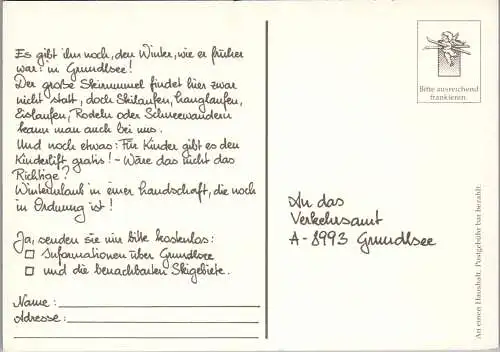 Es gibt ihn noch, den Winter, wie er früher
war: in Grundlsee!
Der große Skirummel findet hier zwar
nicht statt, doch Skilaufen, Langlaufen,
Eislaufen, Rodeln oder Schneewandern
kann man auch bei uns.
Und noch etwas: Für Kinder gibt es den
Kinderlift gratis! - Wäre das nicht das
Richtige?
Winterurlaub in einer Landschaft, die noch
in Ordnung ist!
Ja, senden sie mir bitte kostenlos:
Informationen über Grundlsee
und die benachbarten Skigebiete.
Name:
Adresse:
Bitte ausreichend
frankieren.
An das
Verkehrsamt
A-8993 Grundlsee
An einen Haushalt. Postgebühr bar bezahlt.